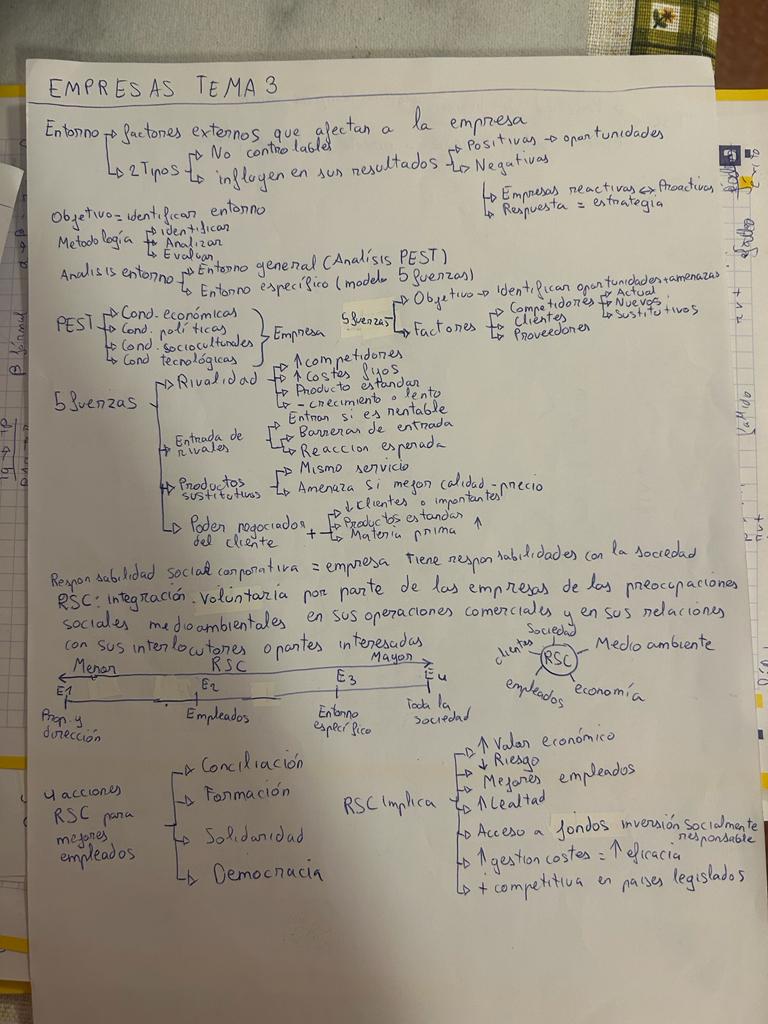 EMPRESAS TEMA 3
Entorno → factores externos que afectan a la empresa
→ 2 Tipos → No controlables
→ influyen en sus resultados → Positivas → oportunidades
→ Negativas
→ Empresas reactivas ↔ Proactivas
→ Respuesta = estrategia
Objetivo = identificar entorno
Metodología → identificar
→ Analizar
→ Evaluar
Analisis entorno → Entorno general (Analísis PEST)
→ Entorno específico (modelo 5 fuerzas)
PEST → Cond. económicas
→ Cond. políticas
→ Cond. socioculturales
→ Cond tecnológicas
Empresa
5 fuerzas → Objetivo → identificar oportunidades + amenazas
→ Factores → Competidores → Actual
→ Nuevos
→ Sustitutivos
→ Clientes
→ Proveedores
5 fuerzas → Rivalidad → ↑ competidores
→ ↑ Costes fijos
→ Producto estandar
→ - crecimiento o lento
→ Entrada de rivales → Entran si es rentable
→ Barreras de entrada
→ Reaccion esperada
→ Productos sustitutivos → Mismo servicio
→ Amenaza si mejor calidad - precio
→ Poder negociador del cliente + → ↓ Clientes o importantes
→ Productos estandar
→ Materia prima ↑
Responsabilidad social corporativa = empresa tiene responsabilidades con la sociedad
RSC: integración voluntaria por parte de las empresas de las preocupaciones
sociales medioambientales en sus operaciones comerciales y en sus relaciones
con sus interlocutores o partes interesadas
Menor RSC Mayor
E1 E2 E3 E4
Prop. y dirección
Empleados
Entorno específico
Toda la sociedad
Sociedad
clientes
RSC
Medio ambiente
empleados
economía
4 acciones
RSC para
mejores
empleados
→ Conciliación
→ Formación
→ Solidaridad
→ Democracia
RSC implica → ↑ Valor económico
→ ↓ Riesgo
→ Mejores empleados
→ ↑ Lealtad
→ Acceso a fondos inversión socialmente responsable
→ ↑ gestion costes = ↑ eficacia
→ + competitiva en paises legislados